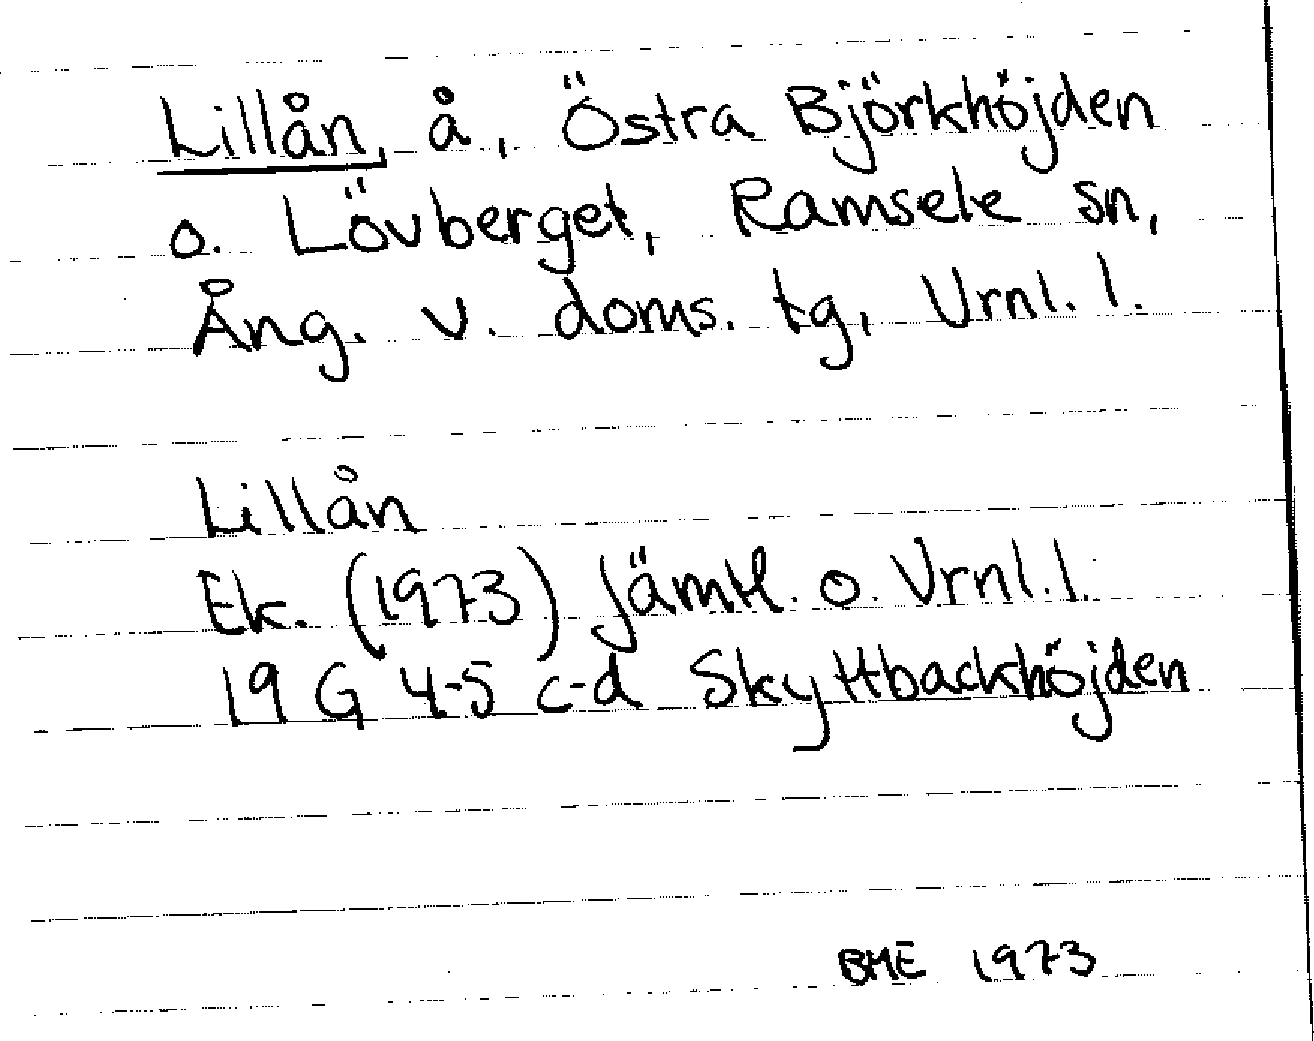 Lillån, å, Östra Björkhöjden
o. Lövberget, Ramsele sn,
Ång. v. doms. tg, Vrnl. l.
Lillån
Ek. (1973) Jämtl. o. Vrnl. l.
19 G 4-5 c-d Skyttbackhöjden
BME 1973